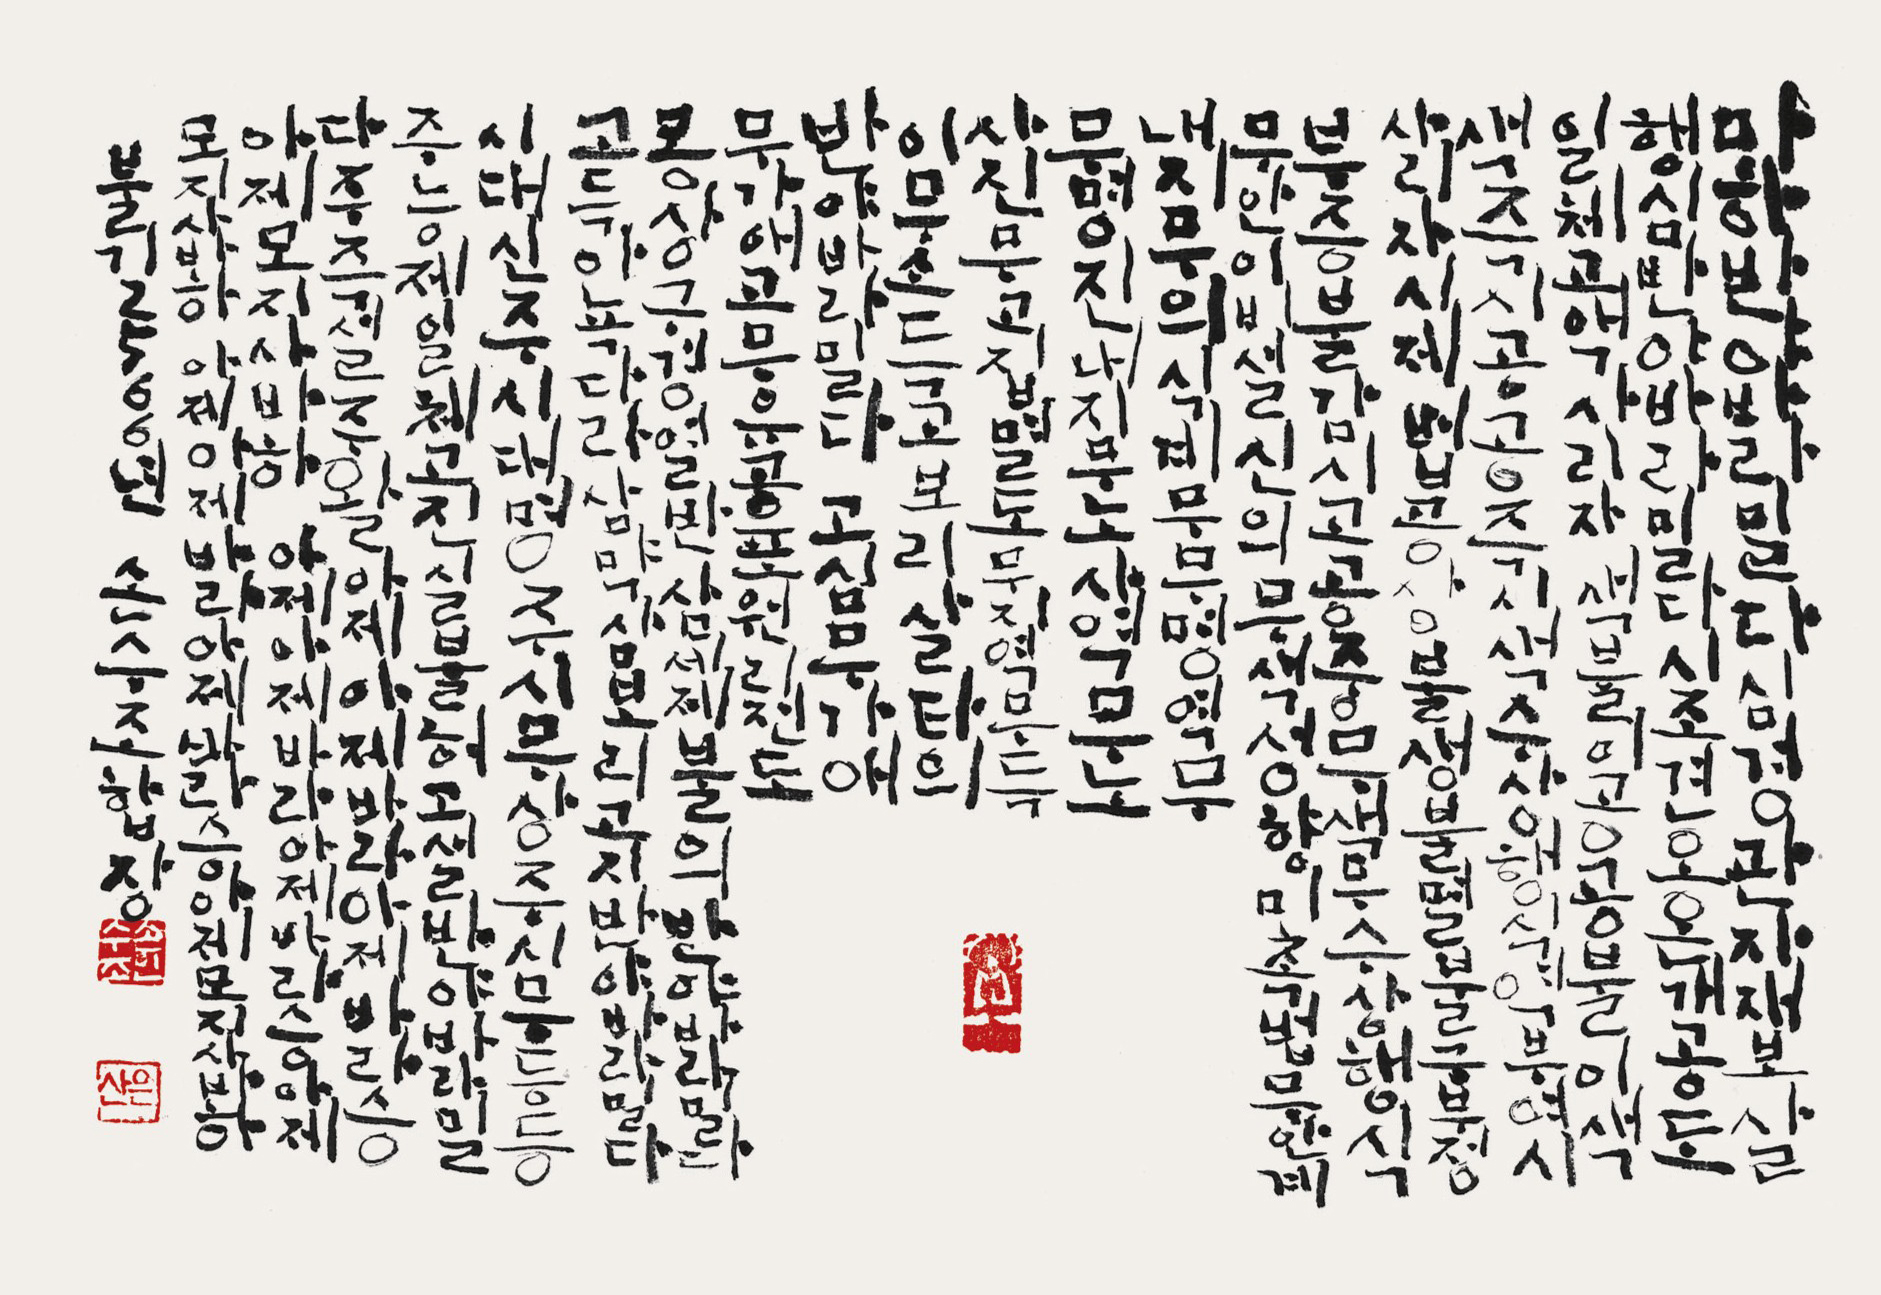 마하반야바라밀다심경관자재보살
행심반야바라밀다시조견오온개공도
일체고액사리자 색불이공공불이색
색즉시공공즉시색수상행식역부여시
사리자시제법공상불생불멸불구부정
부증불감시고공중무색무수상행식
무안이비설신의무색성향미촉법무안계
내지무의식계무무명역무
무명진내지무노사역무노
사진무고집멸도무지역무득
이무소득고보리살타의
반야바라밀다 고심무가애
무가애고무유공포원리전도
몽상구경열반삼세제불의반야바라밀다
고득아뇩다라삼먁삼보리고지반야바라밀다
시대신주시대명주시무상주시무등등
주능제일체고진실불허고설반야바라밀
다주즉설주왈아제아제바라아제바라승
아제모지사바하 아제아제바라아제바라승아제
모지사바하 아제아제바라아제바라승아제모지사바하
불기2566년 손수조합장
은산